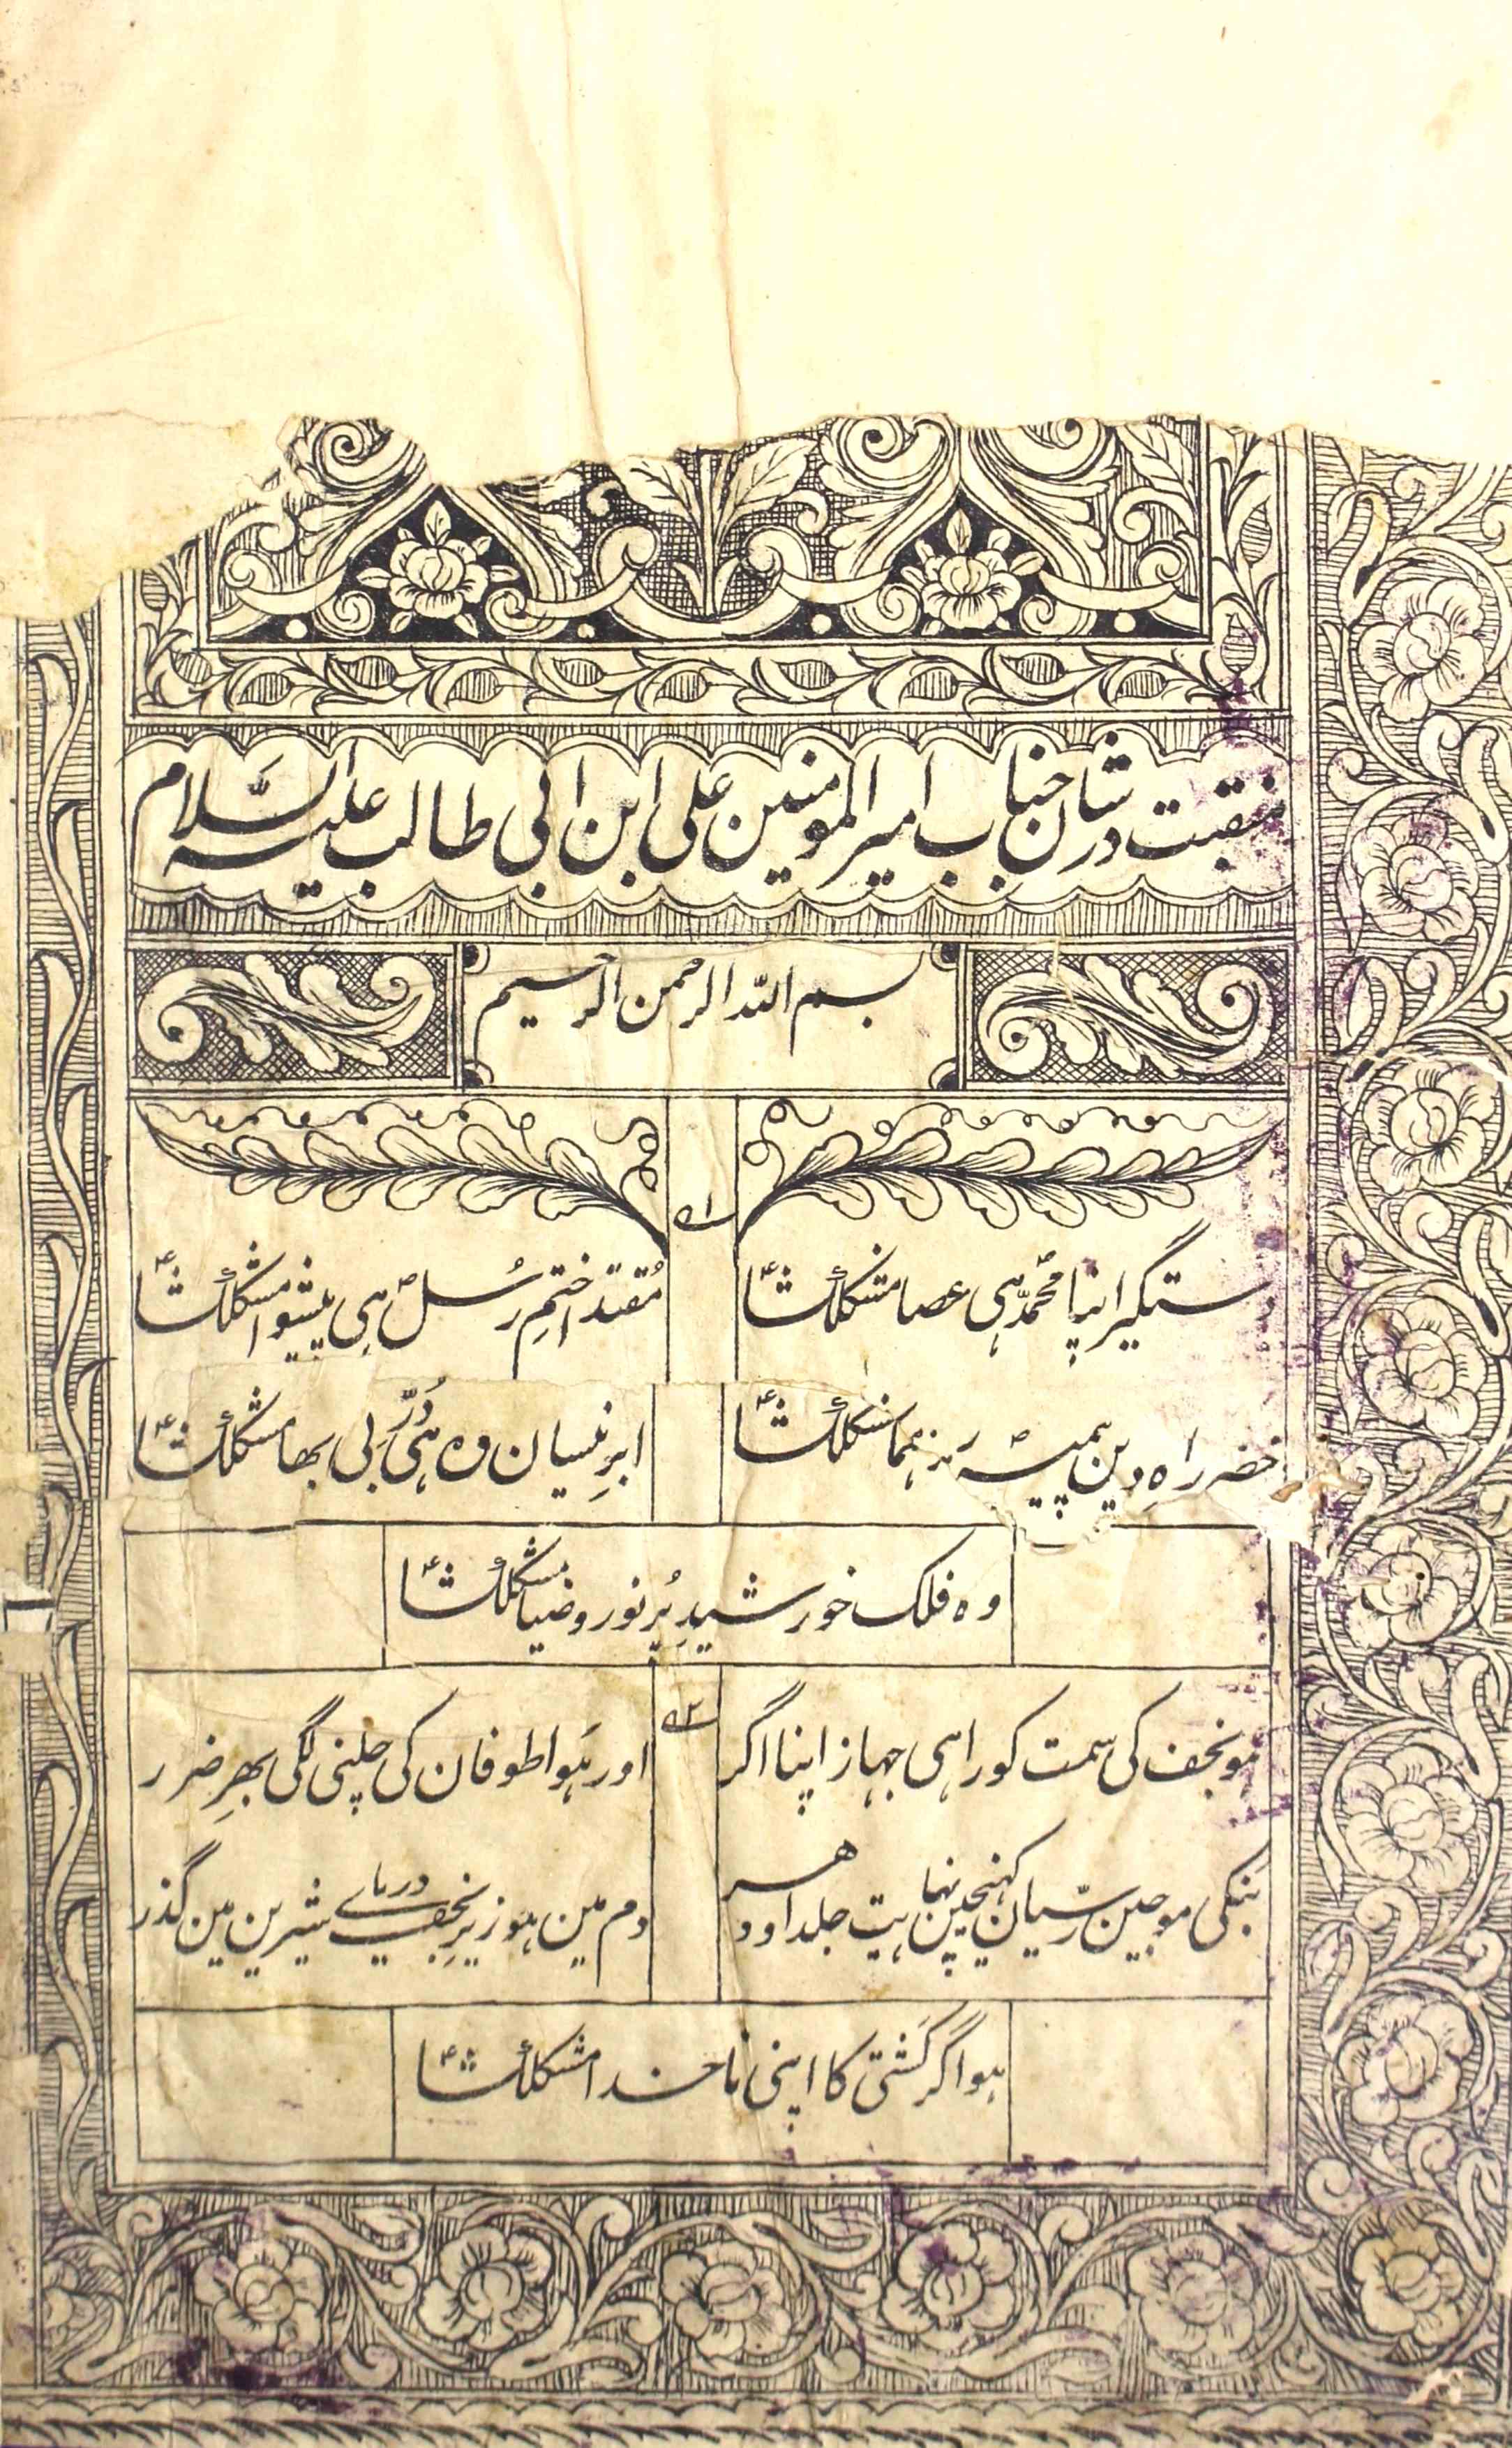 منقبت در شان جناب امیر المومنین علی ابن ابی طالب علیہ السَّلام
بسم اللہ الرحمن الرحیم
۱
دستگیر اپنا محمدؐ ہی عصا مشکلکشاؑ مُقتدا ختمِ رُسلؐ ہی پیشوا مشکلکشاؑ
خضر راہِ دین پیمبرؐ رہنما مشکلکشاؑ ابرِ نیسان وہ ہی دُرِّ بی بها مشکلکشاؑ
وہ فلک خورشیدِ پُر نور و ضیا مشکلکشاؑ
۲
ہو نجف کی سمت کو راہی جہاز اپنا اگر اور ہَوا طوفان کی چلنی لگی بهرِ ضرر
بَنکی موجین رسّیان کہنیچین نہایت جلد اودہر دم مین ہو زیرِ نجف دریاے شیرین مین گذر
ہو اگر کَشتی کا اپنی ناخدا مشکلکشاؑ